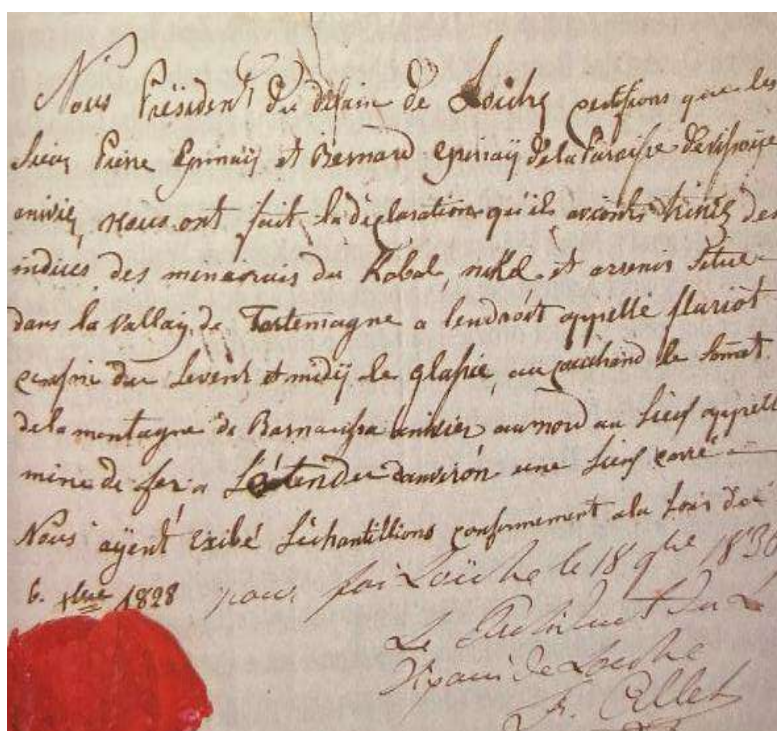 Nous Président du disain de Louche certifions que les
Sieur Pierre Epinaÿ et Bernard Epinaÿ de la Paroisse de vissoye
anivié, nous ont fait la déclaration qu'ils avionts des
indices des minérais du Kobal, nikel et arsenic situe
dans la Vallay de Tortemagne a lendroit appellé fluriot
confine du Levent et midÿ le glasié, au couchand le Somat
de la montagne de Barneussa anivier au nord au Lieuf appellé
mine de fer a L'étendu danvirón une Lieuf carré
Nous ayent Exibé Léchantillions conformement a la Lois du
6. xbre 1828 pour foi Loüche le 18 9bre 1830
Le Président du
Dixain de Louche
Allet